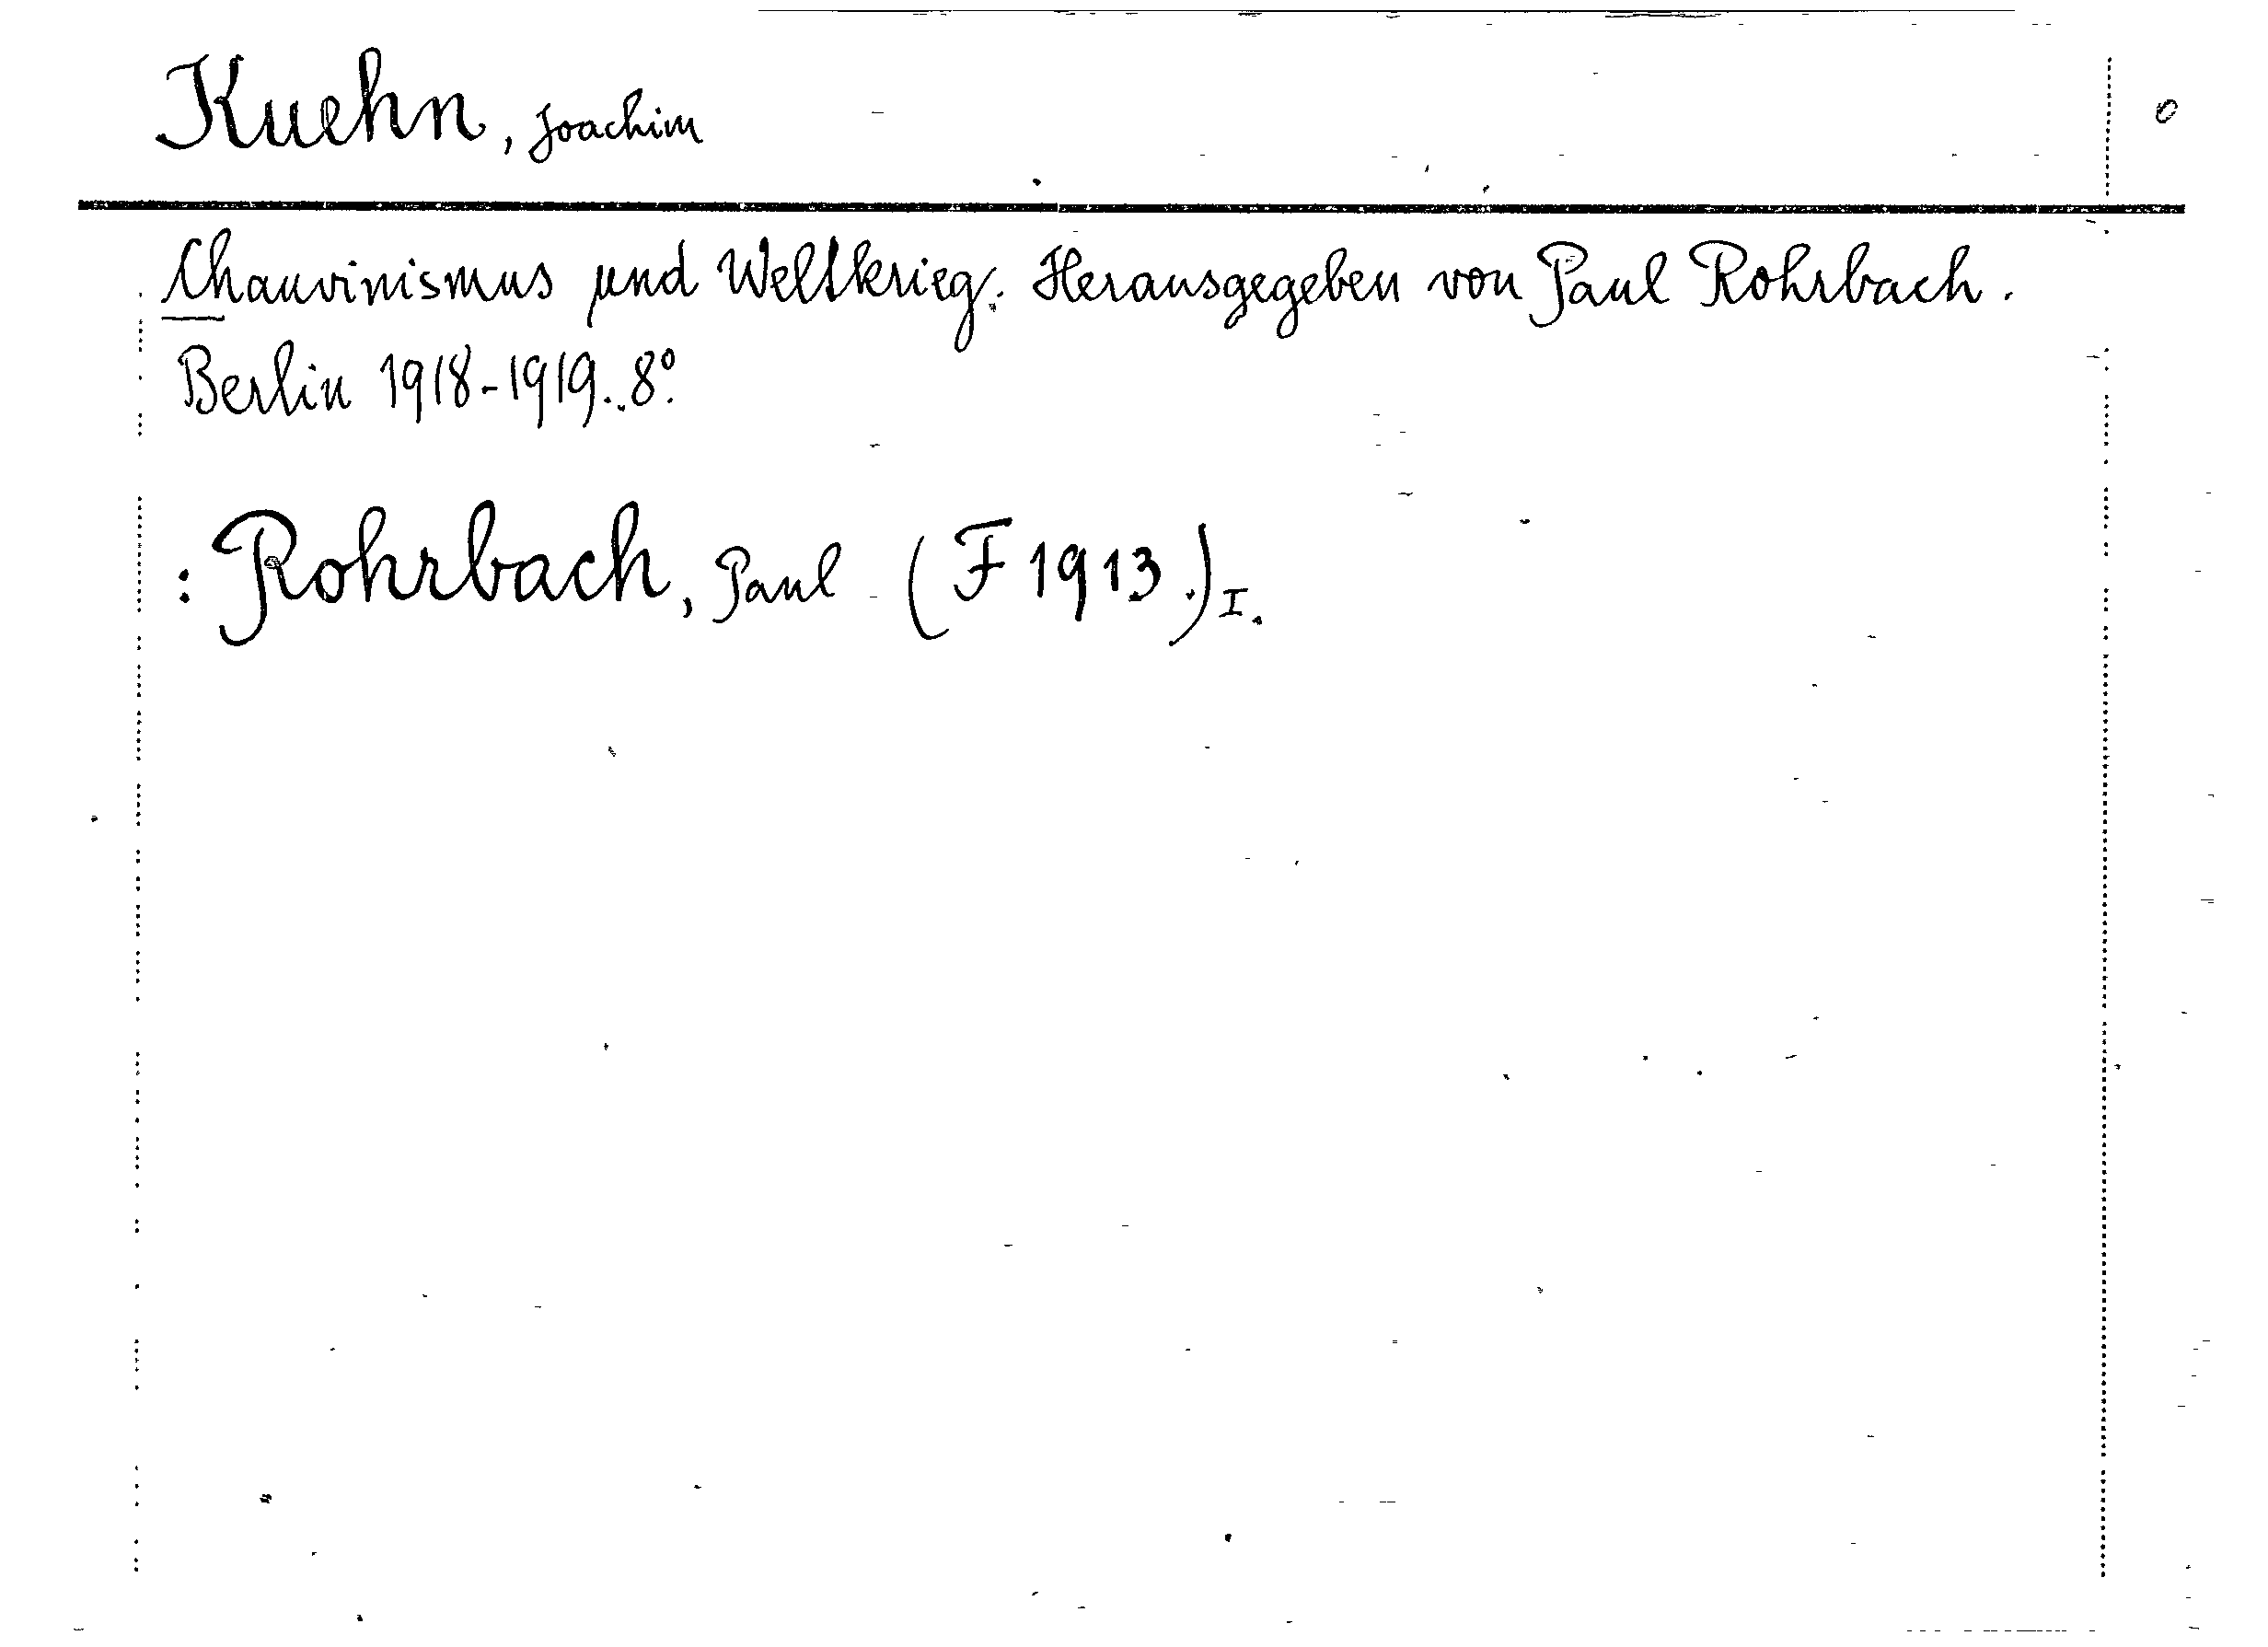 Kuehn, Joachim 0
Chauvinismus und Weltkrieg. Herausgegeben von Paul Rohrbach.
Berlin 1918-1919. 8°.
: Rohrbach, Paul (F 1913.) I.